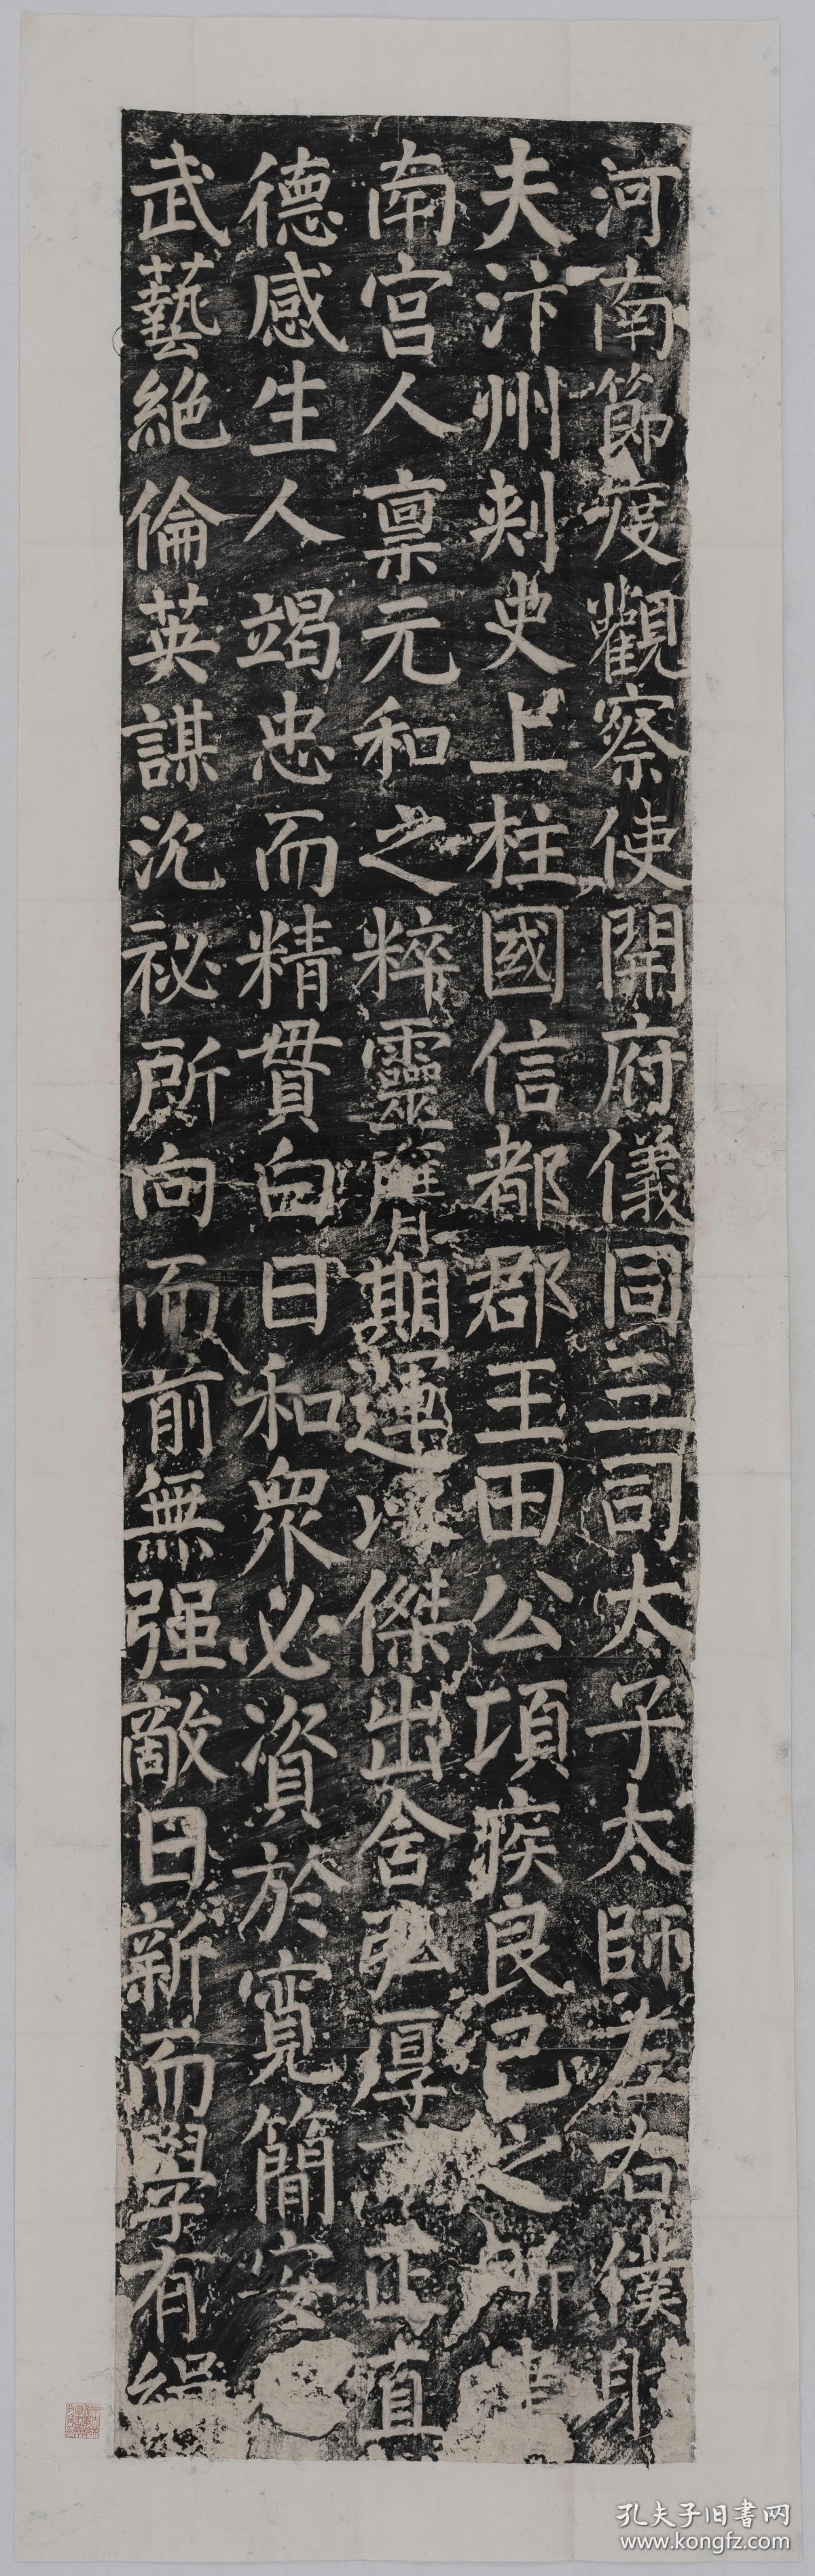 河南節度觀察使開府儀同三司太子太師左右僕射
夫汴州刾史上柱國信都郡王田公頃疾良已之所
南宫人稟元和之粹靈膺期運以傑出含弘厚正直
德感生人竭忠而精貫白日和衆必資於寛簡安
武藝絶倫英謀沈祕所向而前無强敵日新而學有緝
孔夫子旧書网
www.kongfz.com